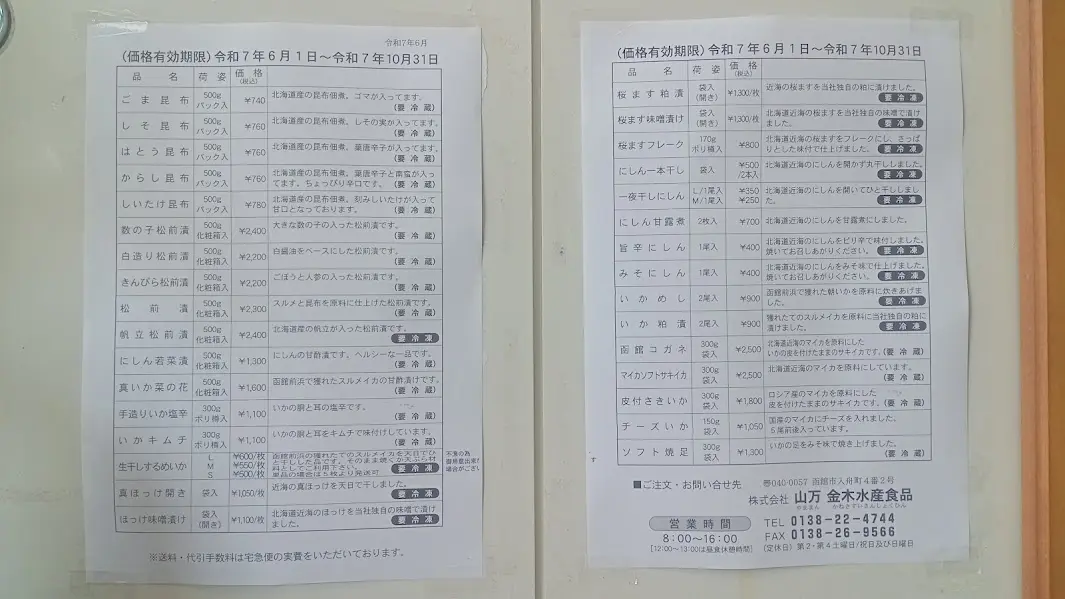 令和7年6月
(価格有効期限)令和7年6月1日～令和7年10月31日
品 名 荷 姿 価 格(税込)
ごま昆布 500g パック入 ¥740 北海道産の昆布佃煮。ゴマが入ってます。(要 冷 蔵)
しそ昆布 500g パック入 ¥760 北海道産の昆布佃煮。しその実が入ってます。(要 冷 蔵)
はとう昆布 500g パック入 ¥760 北海道産の昆布佃煮。葉唐辛子が入ってます。(要 冷 蔵)
からし昆布 500g パック入 ¥760 北海道産の昆布佃煮。葉唐辛子と南蛮が入ってます。ちょっぴり辛口です。(要 冷 蔵)
しいたけ昆布 500g パック入 ¥780 北海道産の昆布佃煮。刻みしいたけが入って甘口となっております。(要 冷 蔵)
数の子松前漬 500g 化粧箱入 ¥2,400 大きな数の子の入った松前漬です。(要 冷 蔵)
白造り松前漬 500g 化粧箱入 ¥2,200 白醤油をベースにした松前漬です。(要 冷 蔵)
きんぴら松前漬 500g 化粧箱入 ¥2,200 ごぼうと人参の入った松前漬です。(要 冷 蔵)
松前漬 500g 化粧箱入 ¥2,300 スルメと昆布を原料に仕上げた松前漬です。(要 冷 蔵)
帆立松前漬 500g 化粧箱入 ¥2,400 北海道産の帆立が入った松前漬です。要 冷 凍
にしん若菜漬 500g 化粧箱入 ¥1,300 にしんの甘酢漬です。ヘルシーな一品です。(要 冷 蔵)
真いか菜の花 500g 化粧箱入 ¥1,600 函館前浜で獲れたスルメイカの甘酢漬けです。(要 冷 蔵)
手造りいか塩辛 300g ポリ樽入 ¥1,100 いかの胴と耳の塩辛です。(要 冷 蔵)
いかキムチ 300g ポリ樽入 ¥1,100 いかの胴と耳をキムチで味付けしています。(要 冷 蔵)
生干しするめいか L M S ¥600/枚 ¥550/枚 ¥500/枚 函館前浜の獲れたてのスルメイカを天日でひと干しした品です。そのまま焼くか天ぷら材料としてご利用下さい。単品の場合は5枚より発送可 要 冷 凍
不漁の為
場合がござい
真ほっけ開き 袋入 ¥1,050/枚 近海の真ほっけを天日で干しました。要 冷 凍
ほっけ味噌漬け 袋入(開き) ¥1,100/枚 北海道近海のほっけを当社独自の味噌で漬けました。要 冷 凍
※送料・代引手数料は宅急便の実費をいただいております。
(価格有効期限)令和7年6月1日～令和7年10月31日
品 名 荷 姿 価 格(税込)
桜ます粕漬 袋入(開き) ¥1,300/枚 近海の桜ますを当社独自の粕に漬けました。要 冷 凍
桜ます味噌漬け 袋入(開き) ¥1,300/枚 北海道近海の桜ますを当社独自の味噌で漬けました。要 冷 凍
桜ますフレーク 170g ポリ樽入 ¥800 北海道近海の桜ますをフレークにし、さっぱりとした味付で仕上げました。要 冷 凍
にしん一本干し 袋入 ¥500/2本入 北海道近海のにしんを開かず丸干ししました。要 冷 凍
一夜干しにしん L/1尾入 M/1尾入 ¥350 ¥250 北海道近海のにしんを開いてひと干ししました。要 冷 凍
にしん甘露煮 2枚入 ¥700 北海道近海のにしんを甘露煮にしました。
旨辛にしん 1尾入 ¥400 北海道近海のにしんをピリ辛で味付しました。焼いてお召しあがりください。要 冷 凍
みそにしん 1尾入 ¥400 北海道近海のにしんをみそ味で仕上げました。焼いてお召しあがりください。要 冷 凍
いかめし 2尾入 ¥900 函館前浜で獲れた朝いかを原料に炊きあげました。要 冷 凍
いか粕漬 2尾入 ¥900 獲れたてのスルメイカを原料に当社独自の粕に漬けました。要 冷 凍
函館コガネ 300g 袋入 ¥2,500 北海道近海のマイカを原料にしたいかの皮を付けたままのサキイカです。(要 冷 蔵)
マイカソフトサキイカ 300g 袋入 ¥2,500 北海道近海のマイカを原料にしています。(要 冷 蔵)
皮付さきいか 300g 袋入 ¥1,800 ロシア産のマイカを原料にした皮を付けたままのサキイカです。(要 冷 蔵)
チーズいか 150g 袋入 ¥1,050 国産のマイカにチーズを入れました。5尾前後入っています。
ソフト焼足 300g 袋入 ¥1,300 いかの足をみそ味で焼き上げました。(要 冷 蔵)
■ご注文・お問い合せ先 〒040-0057 函館市入舟町4番2号
株式会社 山万 金木水産食品
やままん かねきすいさんしょくひん
営 業 時 間
8:00～16:00
[12:00～13:00は昼食休憩時間]
TEL 0138-22-4744
FAX 0138-26-9566
(定休日) 第2・第4土曜日/祝日及び日曜日